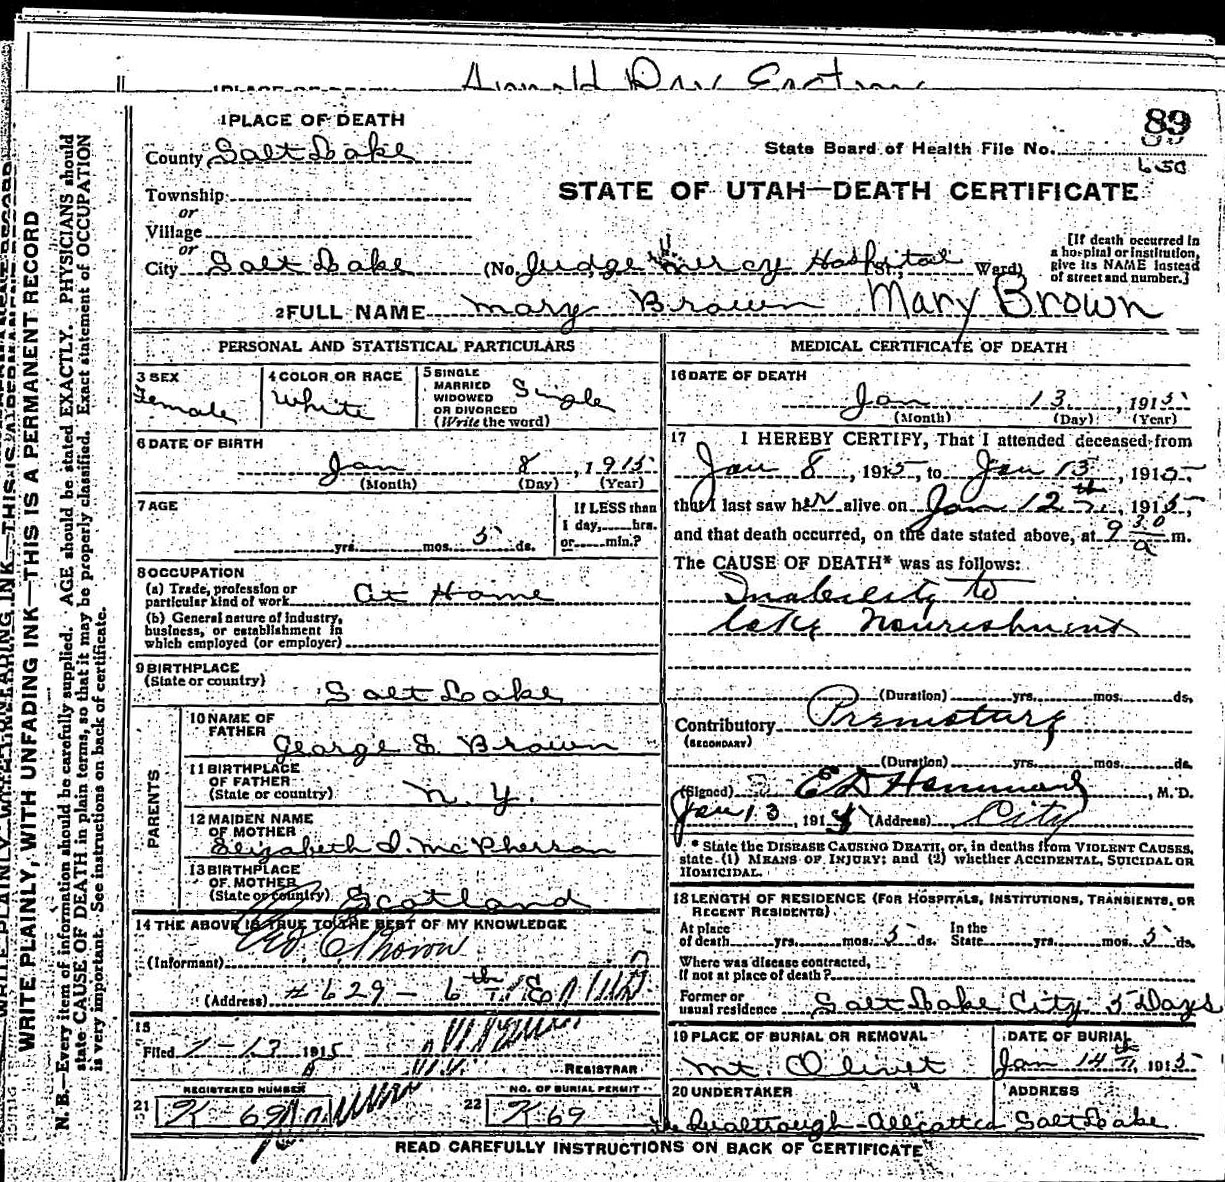 1 PLACE OF DEATH
89
County Salt Lake
State Board of Health File No.
650
Township
STATE OF UTAH—DEATH CERTIFICATE
or
Village
or
City Salt Lake (No. Judge Mercy Hospital St.; Ward)
[If death occurred in a hospital or institution, give its NAME instead of street and number.]
2 FULL NAME Mary Brown Mary Brown
PERSONAL AND STATISTICAL PARTICULARS
3 SEX Female
4 COLOR OR RACE White
5 SINGLE MARRIED WIDOWED OR DIVORCED (Write the word) Single
6 DATE OF BIRTH
Jan 8, 1915
(Month) (Day) (Year)
7 AGE
yrs. mos. 5 ds.
If LESS than 1 day, hrs. or min.?
8 OCCUPATION
(a) Trade, profession or particular kind of work At Home
(b) General nature of industry, business, or establishment in which employed (or employer)
9 BIRTHPLACE
(State or country) Salt Lake
PARENTS
10 NAME OF FATHER George S. Brown
11 BIRTHPLACE OF FATHER (State or country) N. Y.
12 MAIDEN NAME OF MOTHER Elizabeth I. McPherson
13 BIRTHPLACE OF MOTHER (State or country) Scotland
14 THE ABOVE IS TRUE TO THE BEST OF MY KNOWLEDGE
(Informant) Brown
(Address) # 629 - 6th
15
Filed 1-13 1915
REGISTRAR
REGISTERED NUMBER
21 K 69
NO. OF BURIAL PERMIT
22 K 69
MEDICAL CERTIFICATE OF DEATH
16 DATE OF DEATH
Jan 13, 1915
(Month) (Day) (Year)
17 I HEREBY CERTIFY, That I attended deceased from
Jan 8, 1915, to Jan 13, 1915,
that I last saw her alive on Jan 12th, 1915,
and that death occurred, on the date stated above, at 9 30 a m.
The CAUSE OF DEATH* was as follows:
Inability to
take nourishment
(Duration) yrs. mos. ds.
Contributory (SECONDARY) Premature
(Duration) yrs. mos. ds.
(Signed) M. D.
Jan 13, 191 (Address) City
* State the DISEASE CAUSING DEATH, or, in deaths from VIOLENT CAUSES,
state (1) MEANS OF INJURY; and (2) whether ACCIDENTAL, SUICIDAL OR
HOMICIDAL.
18 LENGTH OF RESIDENCE (FOR HOSPITALS, INSTITUTIONS, TRANSIENTS, OR RECENT RESIDENTS)
At place of death yrs. mos. 5 ds. In the State yrs. mos. 5 ds.
Where was disease contracted, if not at place of death?
Former or usual residence Salt Lake City 5 Days
19 PLACE OF BURIAL OR REMOVAL
Mt. Olivet
DATE OF BURIAL
Jan 14th, 1915
20 UNDERTAKER
ADDRESS
Salt Lake
READ CAREFULLY INSTRUCTIONS ON BACK OF CERTIFICATE
WRITE PLAINLY, WITH UNFADING INK—THIS IS A PERMANENT RECORD
N. B.—Every item of information should be carefully supplied. AGE should be stated EXACTLY. PHYSICIANS should
state CAUSE OF DEATH in plain terms, so that it may be properly classified. Exact statement of OCCUPATION
is very important. See instructions on back of certificate.